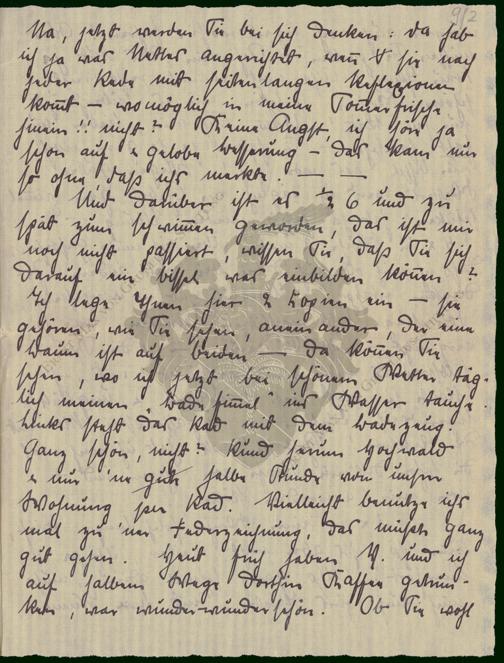 9/2
Na, jetzt werden Sie bei sich denken: da hab
ich ja was Nettes angerichtet, wenn & sie nach
jeder Rede mit seitenlangen Reflexionen
kommt – womöglich in meine Sommerfrische
hinein!! nicht? Keine Angst, ich hör ja
schon auf & gelobe Besserung – das kam nur
so ohne daß ichs merkte. — —
Und darüber ist es ½ 6 und zu
spät zum Schwimmen geworden, das ist mir
noch nicht passiert, wissen Sie, daß Sie sich
darauf ein bissel was einbilden können?
Ich lege Ihnen hier 2 Kopien ein – sie
gehören, wie Sie sehen, aneinander, der eine
Baum ist auf beiden — da können Sie
sehen, wo ich jetzt bei schönem Wetter täg-
lich meinen "Badefimmel" ins Wasser tauche.
Links steht das Rad mit dem Badezeug.
Ganz schön, nicht? Rund herum Hochwald
& nur 'ne gute halbe Stunde von unsrer
Wohnung per Rad. Vielleicht benutze ichs
mal zu 'ner Federzeichnung, das müßte ganz
gut gehen. Heut früh haben V. und ich
auf halbem Wege dorthin Kaffee getrun-
ken, war wunder-wunderschön. Ob Sie wohl